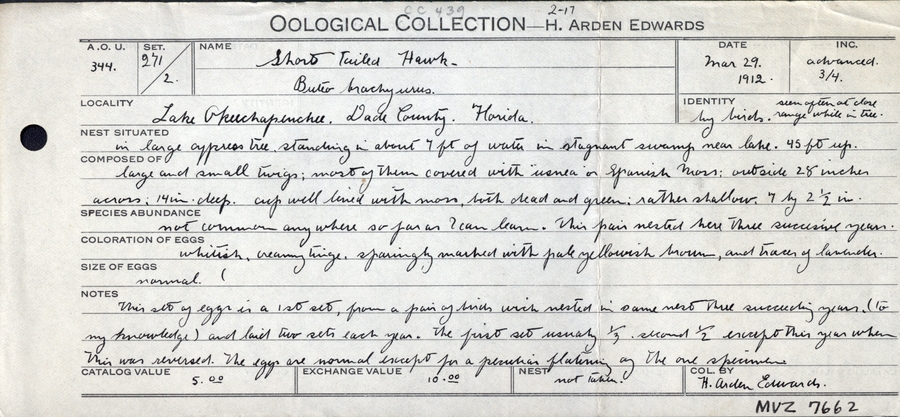 CC 439
2-17
OOLOGICAL COLLECTION—H. ARDEN EDWARDS
A.O.U. 344.
SET. 271/2.
NAME Short Tailed Hawk.
Buteo brachyurus.
DATE Mar 29. 1912.
INC. advanced. 3/4.
LOCALITY Lake Okeechapenchee. Dade County. Florida.
IDENTITY by birds. seen often at close range while in tree.
NEST SITUATED in large cypress tree. standing in about 7 ft of water in stagnant swamp near lake. 45 ft up.
COMPOSED OF large and small twigs; most of them covered with usnea or Spanish Moss; outside 28 inches
across; 14 in. deep. cup well lined with moss, both dead and green; rather shallow. 7 by 2½ in.
SPECIES ABUNDANCE not common anywhere so far as I can learn. This pair nested here three succesive years.
COLORATION OF EGGS whitish, creamy tinge. sparingly marked with pale yellowish brown, and traces of lavender.
SIZE OF EGGS normal. (
NOTES This set of eggs is a 1st set, from a pair of birds wich nested in same nest three succeeding years. (to
my knowledge) and laid two sets each year. The first set usualy 1/3. second 1/2 except this year when
this was reversed. The eggs are normal except for a peculiar flatening of the one specimen
CATALOG VALUE 5.00
EXCHANGE VALUE 10.00
NEST not taken.
COL. BY H. Arden Edwards.
MVZ 7662